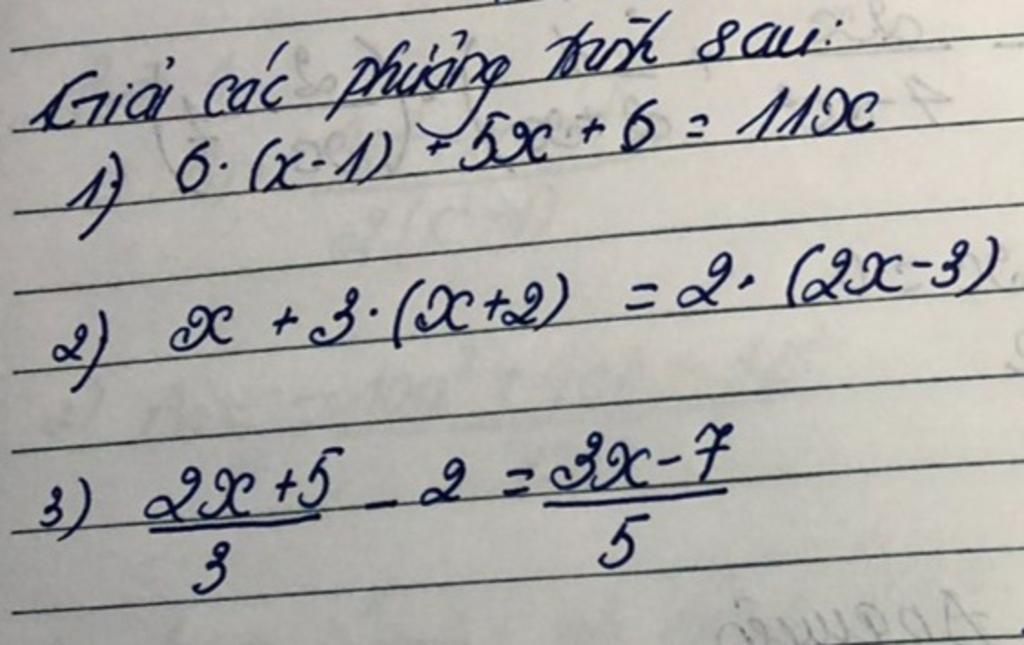 Giải các phương trình sau:
1) 6·(x-1) + 5x + 6 = 11x
2) x + 3·(x+2) = 2·(2x-3)
3) (2x+5)/3 - 2 = (3x-7)/5